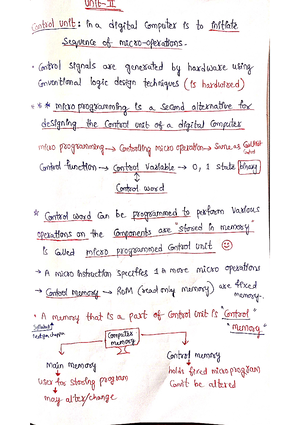 Unit-II
Control unit: In a digital Computer is to initiate
Sequence of micro-operations.
• Control signals are generated by hardware using
Conventional logic design techniques (is hardwired)
*** microprogramming is a second alternative for
designing the Control unit of a digital Computer
micro programming → Controlling micro operation → Same as
Control function → Control Variable → 0, 1 state binary
Control word
* Control word can be programmed to perform various
operations on the Components are stored in memory"
is called micro programmed Control unit 🙂
→ A micro Instruction specifies 1 or more micro operations
→ Control memory → ROM (read only memory) are fixed
memory.
• A memory that is a part of Control unit is "Control
memory"
Computer
memory
main memory
Control memory
user for storing program
holds fixed microprogram
may alter/change
Can't be altered